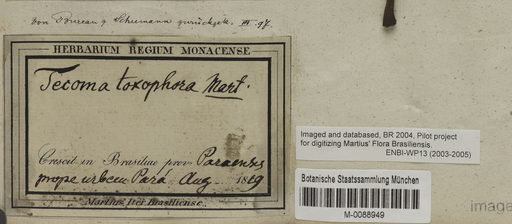 von Bureau & Schumann zurückgek. III. 97.
HERBARIUM REGIUM MONACENSE
Tecoma toxophora Mart.
Crescit in Brasiliae prov. Paraensis
prope urbem Pará. Aug. 1819
Martius Iter Brasiliense.
Imaged and databased, BR 2004, Pilot project
for digitizing Martius' Flora Brasiliensis.
ENBI-WP13 (2003-2005)
Botanische Staatssammlung München
M-0088949
image